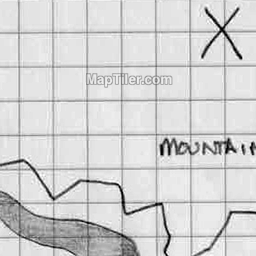 X
MapTiler.com
MOUNTAIN